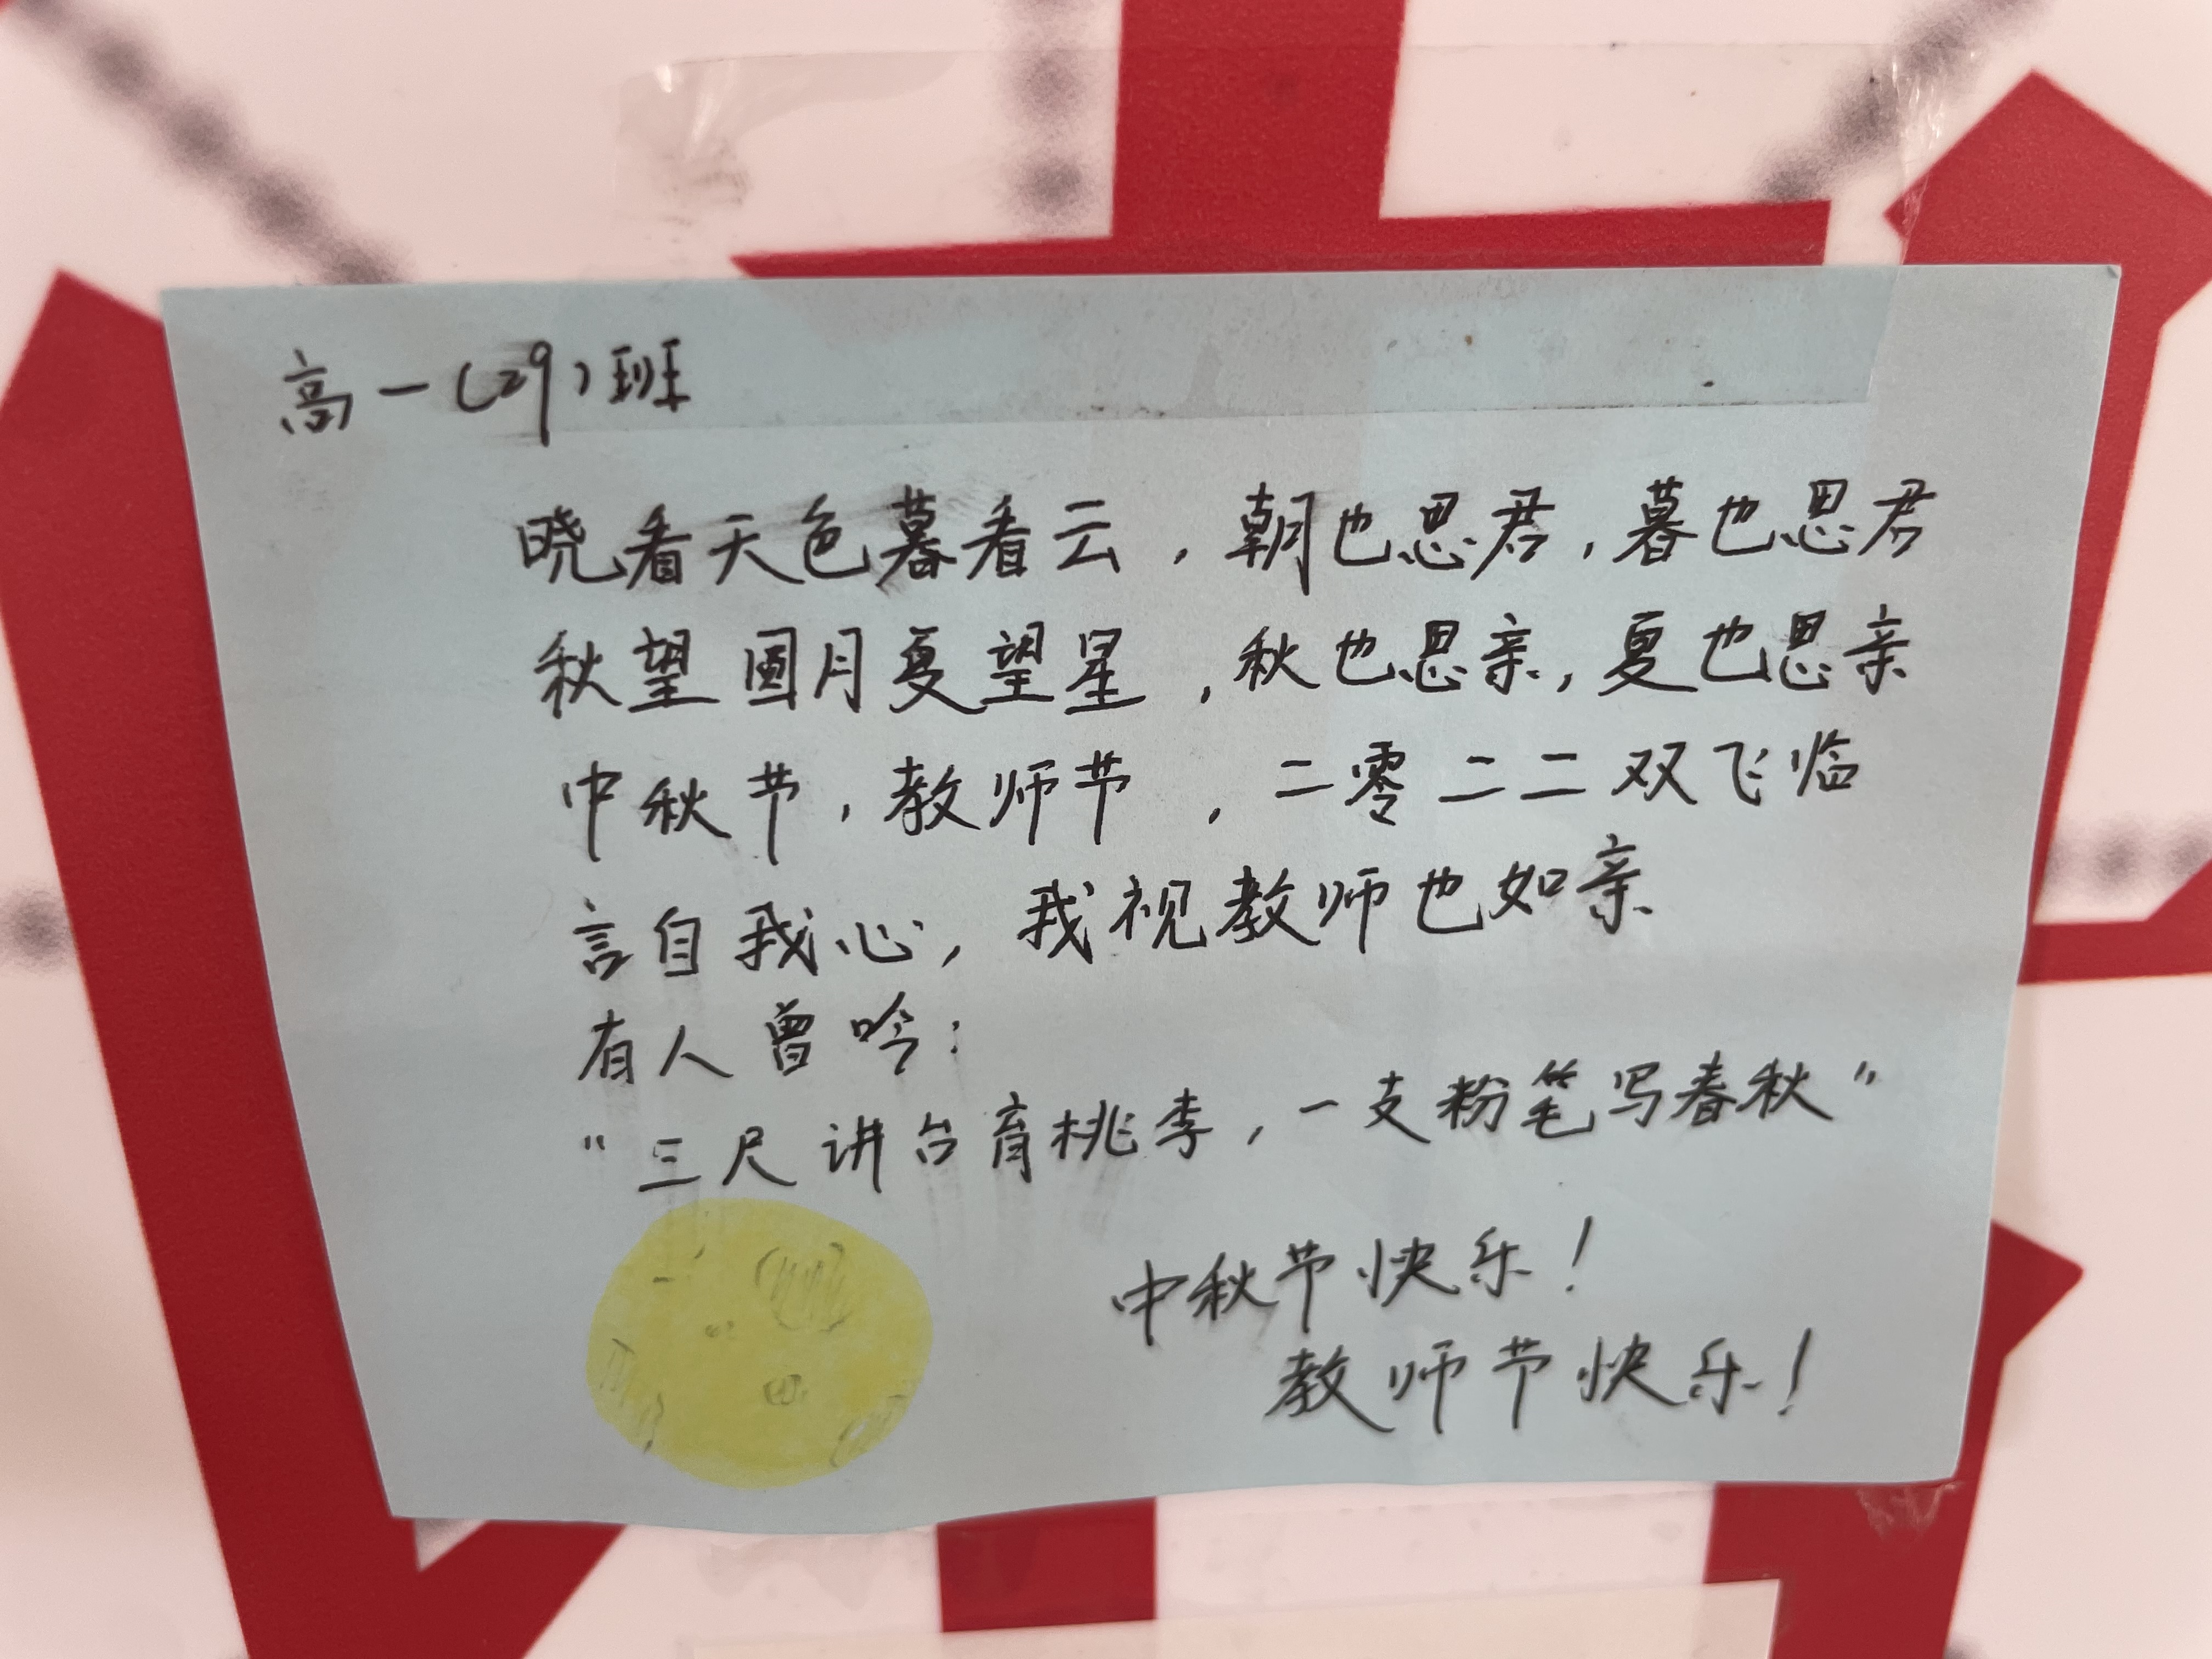 高一(29)班
晓看天色暮看云，朝也思君，暮也思君
秋望圆月夏望星，秋也思亲，夏也思亲
中秋节，教师节，二零二二双飞临
言自我心，我视教师也如亲
有人曾吟：
"三尺讲台育桃李，一支粉笔写春秋"
中秋节快乐！
教师节快乐！